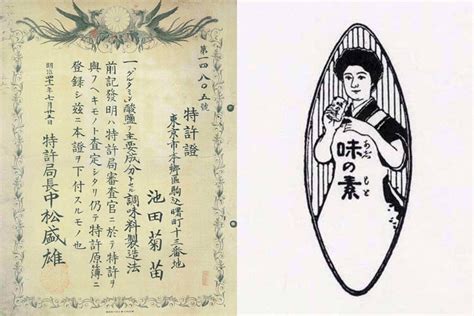 第一四八〇五號
特許證
東京市本郷區駒込曙町十三番地
池田菊苗
一「グルタミン」酸鹽ヲ主要成分トセル調味料製造法
前記發明ハ特許局審査官ニ於テ特許ヲ
與フヘキモノト査定シタリ仍テ特許原簿ニ
登録シ茲ニ本證ヲ下付スルモノ也
明治四十一年七月二十五日
特許局長中松盛雄
味の素
あぢ もと